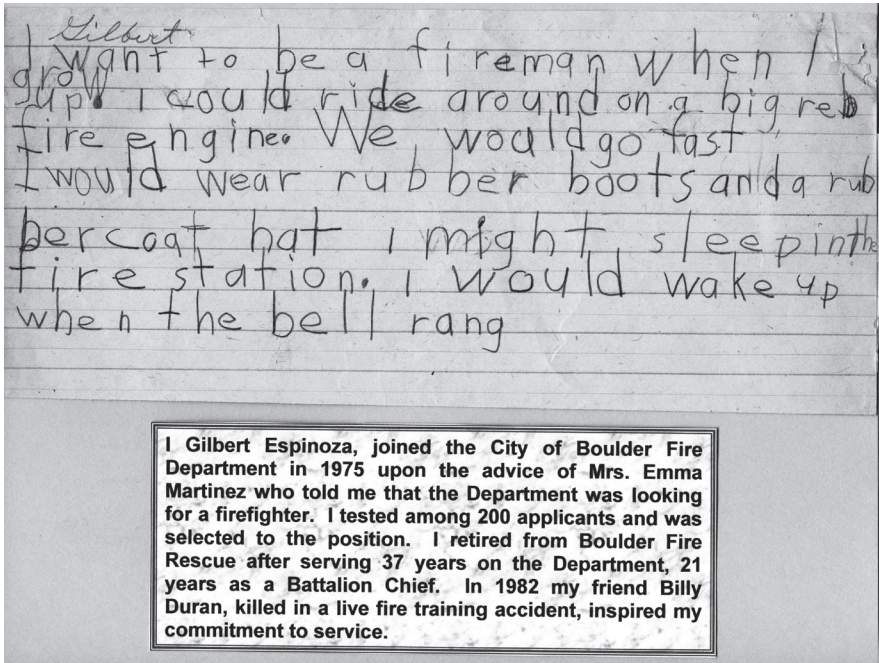 Gilbert
I want to be a fireman when I
grow
up. I would ride around on a big red
fire engine. We would go fast
I would wear rubber boots and a rub
ber coat hat i might sleep in the
fire station. i would wake up
when the bell rang
I Gilbert Espinoza, joined the City of Boulder Fire
Department in 1975 upon the advice of Mrs. Emma
Martinez who told me that the Department was looking
for a firefighter. I tested among 200 applicants and was
selected to the position. I retired from Boulder Fire
Rescue after serving 37 years on the Department, 21
years as a Battalion Chief. In 1982 my friend Billy
Duran, killed in a live fire training accident, inspired my
commitment to service.